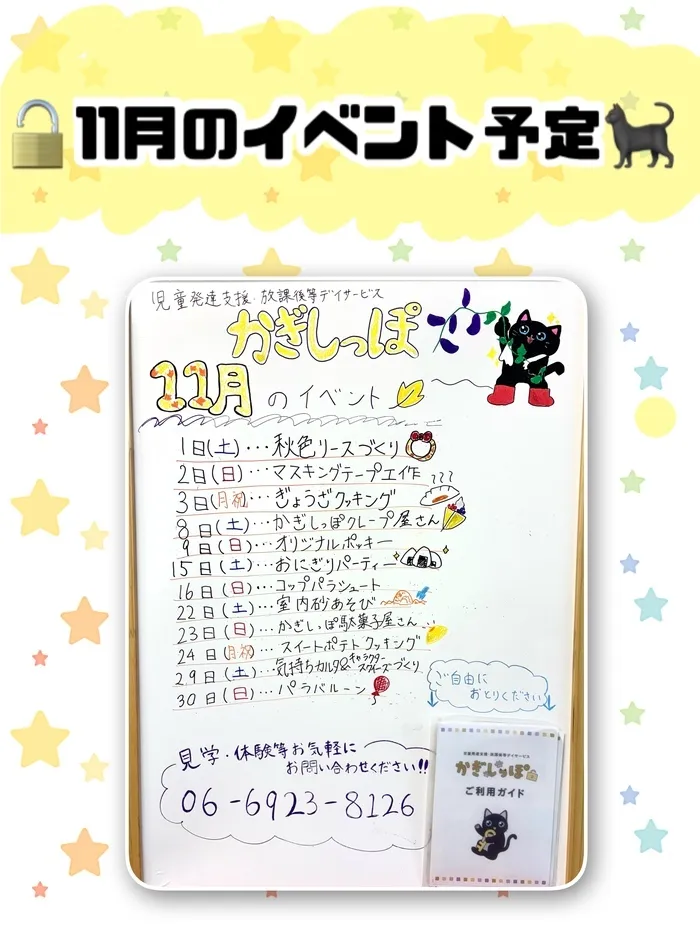 11月のイベント予定
児童発達支援・放課後等デイサービス
かぎしっぽ
11月のイベント
1日(土)…秋色リースづくり
2日(日)…マスキングテープ工作
3日(月祝)…ぎょうざクッキング
8日(土)…かぎしっぽクレープ屋さん
9日(日)…オリジナルポッキー
15日(土)…おにぎりパーティー
16日(日)…コップパラシュート
22日(土)…室内砂あそび
23日(日)…かぎしっぽ駄菓子屋さん
24日(月祝)…スイートポテトクッキング
29日(土)…気持ちカルタ&キャラクタースクイーズづくり
30日(日)…パラバルーン
ご自由に
おとりください
見学・体験等お気軽に
お問い合わせください!!
06-6923-8126
児童発達支援・放課後等デイサービス
かぎしっぽ
ご利用ガイド